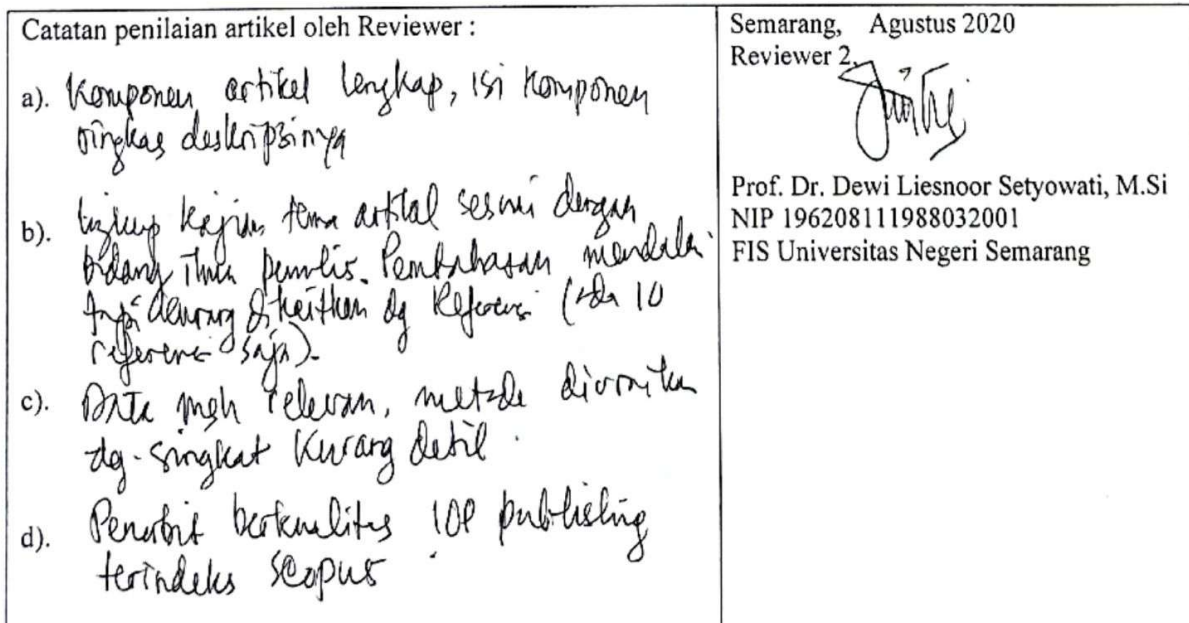 Catatan penilaian artikel oleh Reviewer :
a). Komponen artikel lengkap, isi komponen
ringkas deskripsinya
b). Lingkup kajian tema artikel sesuai dengan
bidang ilmu penulis. Pembahasan mendalam
tapi kurang dikaitkan dg Referensi (ada 10
referensi saja).
c). Data msh relevan, metode diuraikan
dg. singkat kurang detil.
d). Penerbit berkualitas IOP publishing
terindeks scopus
Semarang, Agustus 2020
Reviewer 2,
Prof. Dr. Dewi Liesnoor Setyowati, M.Si
NIP 196208111988032001
FIS Universitas Negeri Semarang